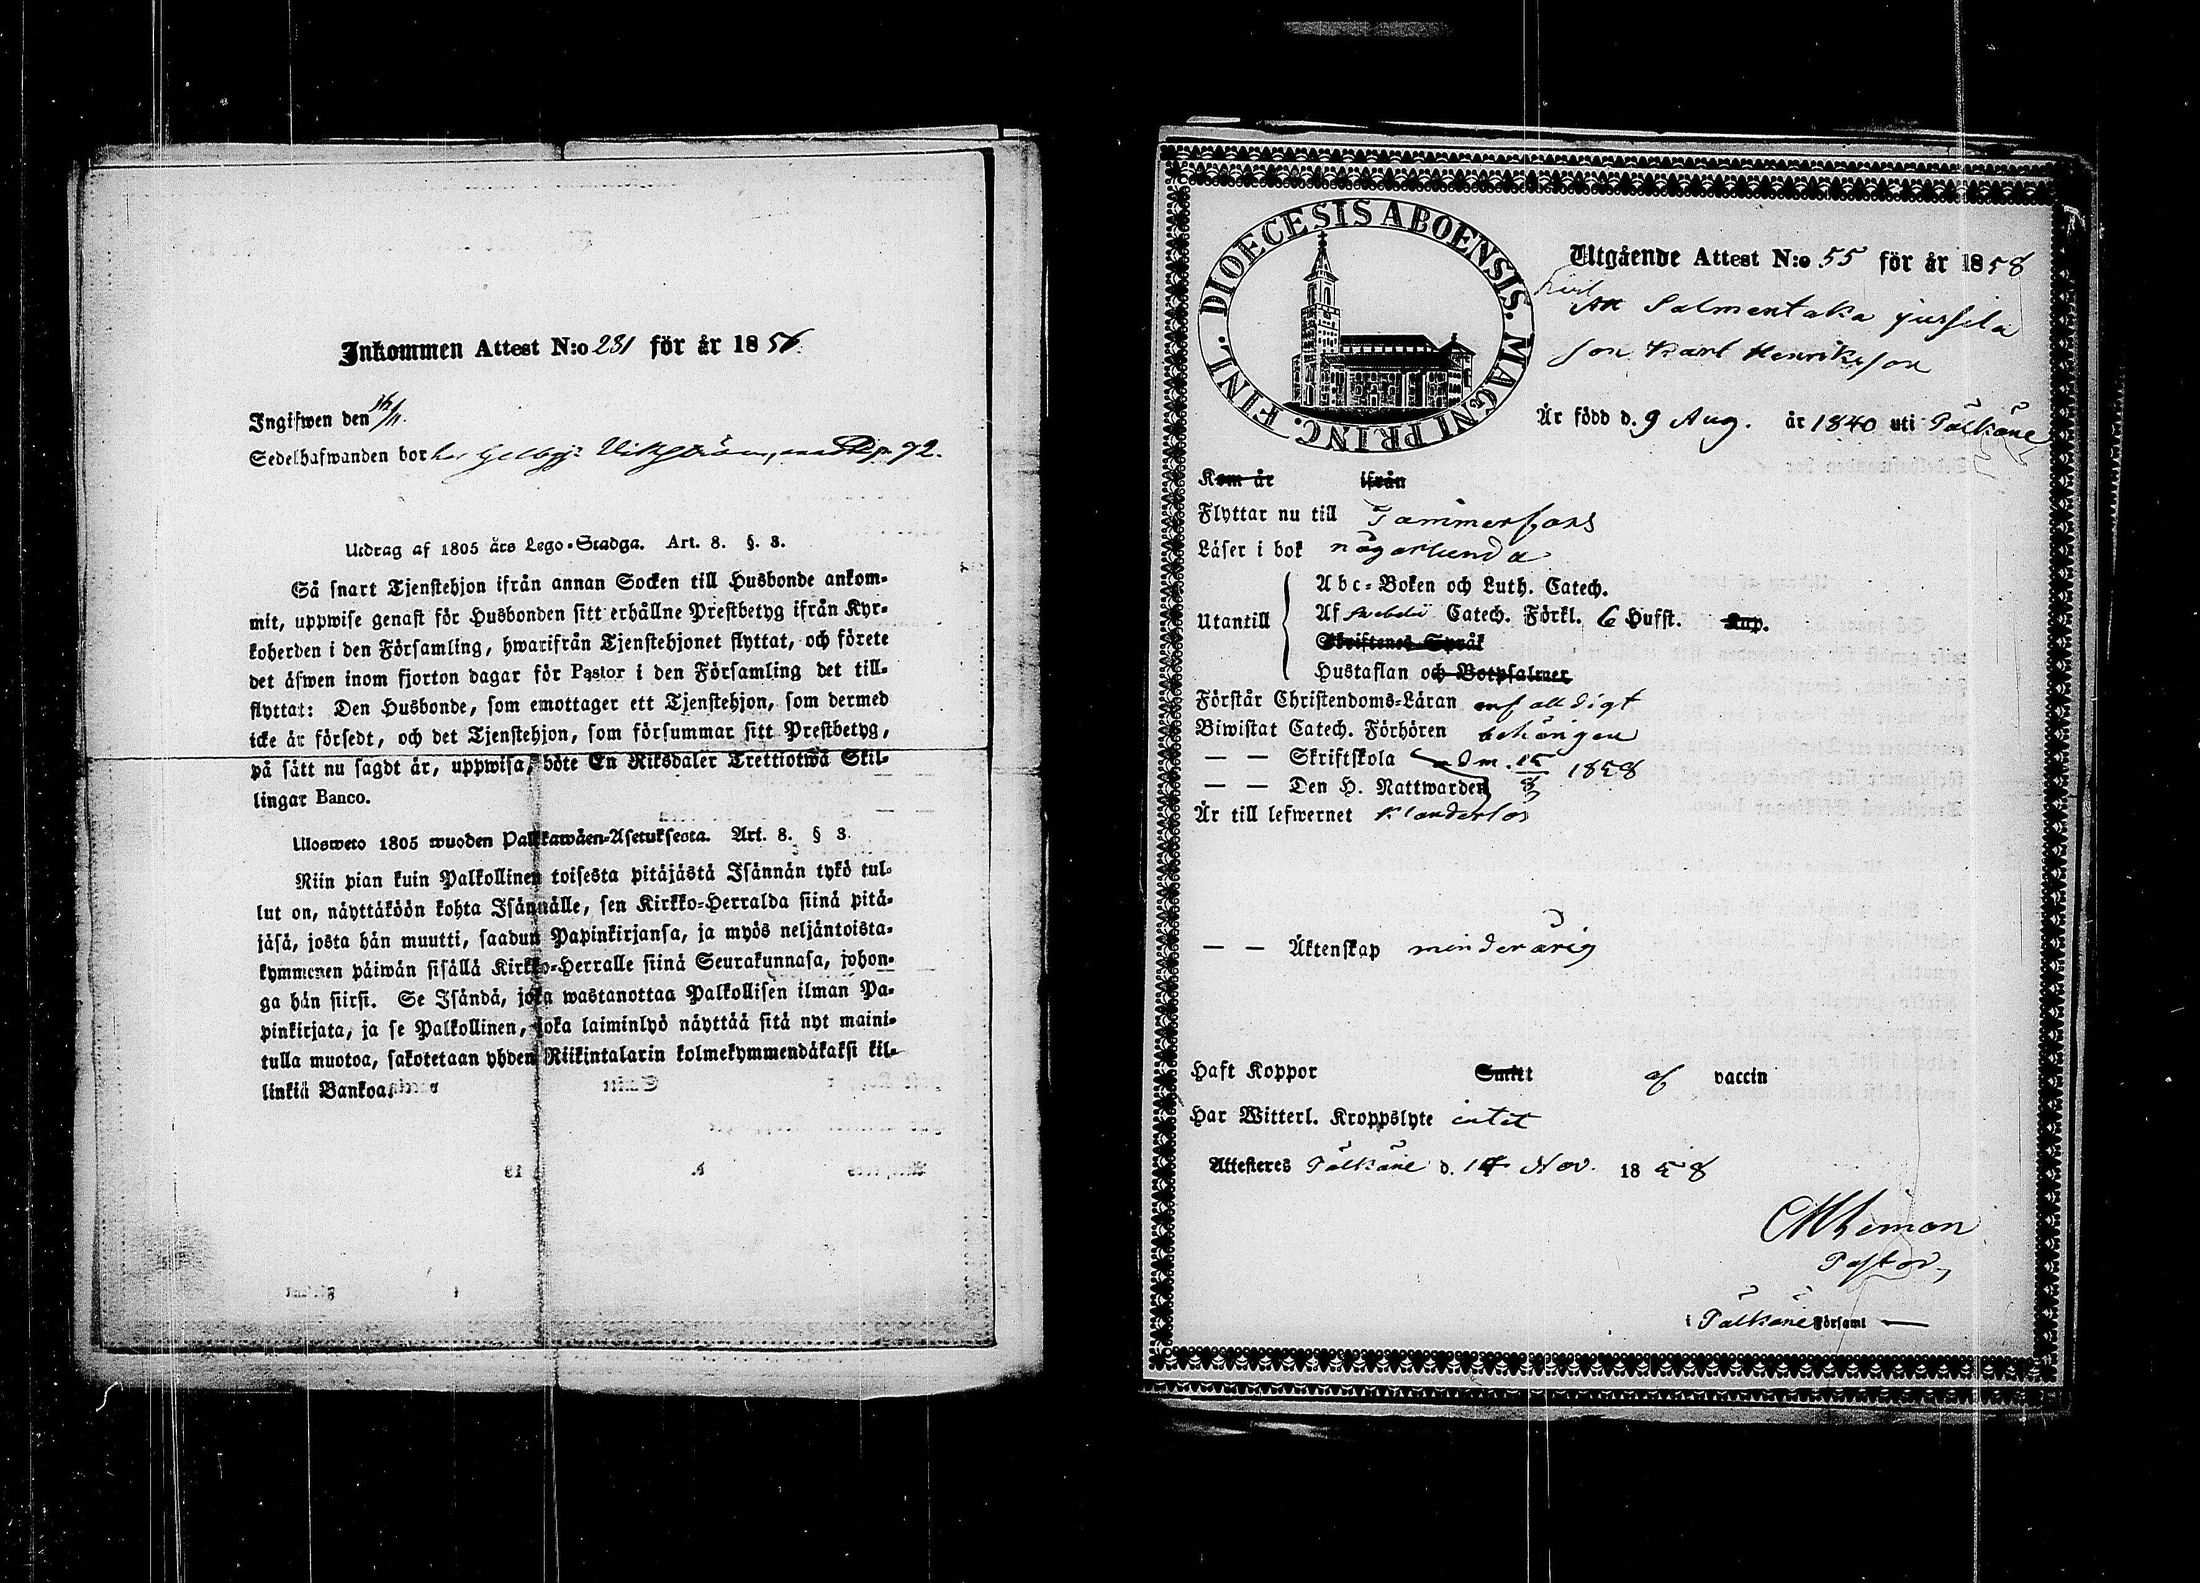 Inkommen Attest N:o 231 för år 1856.
Ingifwen den 16/11.
Sedelhafwanden bor hos Wikström, 92.
Utdrag af 1805 års Lego-Stadga. Art. 8. §. 3.
Så snart Tjenstehjon ifrån annan Socken till Husbonde ankom-
mit, uppwise genast för Husbonden sitt erhållne Prestbetyg ifrån Kyr-
koherden i den Församling, hwarifrån Tjenstehjonet flyttat, och förete
det äfwen inom fjorton dagar för Pastor i den Församling det till-
flyttat: Den Husbonde, som emottager ett Tjenstehjon, som dermed
icke är försedt, och det Tjenstehjon, som försummar sitt Prestbetyg,
på sätt nu sagdt är, uppwisa, böte En Riksdaler Trettiotwå Skil-
lingar Banco.
Ulosweto 1805 wuoden Palkkawäen-Asetuksesta. Art. 8. § 3.
Niin pian kuin Palkollinen toisesta pitäjästä Isännän tykö tul-
lut on, näyttäköön kohta Isännälle, sen Kirkko-Herralda siinä pitä-
jäsä, josta hän muutti, saadun Papinkirjansa, ja myös neljäntoista-
kymmenen päiwän sisällä Kirkko-Herralle siinä Seurakunnasa, johon-
ga hän siirsi. Se Isändä, joka wastanottaa Palkollisen ilman Pa-
pinkirjata, ja se Palkollinen, joka laiminlyö näyttää sitä nyt maini-
tulla muotoa, sakotetaan yhden Riikintalarin kolmekymmendäkaksi kil-
linkiä Bankoa.
DIOECESIS ABOENSIS. MAGNI PRINC. FINL.
Utgående Attest N:o 55 för år 1858
Salmentaka Jussila
son Karl Henriksson
Är född d. 9 Aug. år 1840 uti Pälkäne
Kom år ifrån
Flyttar nu till Tammerfors
Läser i bok någorlunda
Utantill
Abc-Boken och Luth. Catech.
Af Svebelii Catech. Förkl. 6 Hufst. Kap.
Skriftenes Språk
Hustaflan och Botpsalmer
Förstår Christendoms-Läran enfalldigt
Biwistat Catech. Förhören behörigen
— — Skriftskola
adm. 15/8 1858
— — Den H. Nattwarden
Är till lefwernet klanderlös
— — Äktenskap minderårig
Haft Koppor Smitt af vaccin
Har Witterl. Kroppslyte intet
Attesteres Pälkäne d. 14 Nov. 1858
Pastor,
i Pälkäne Församl —